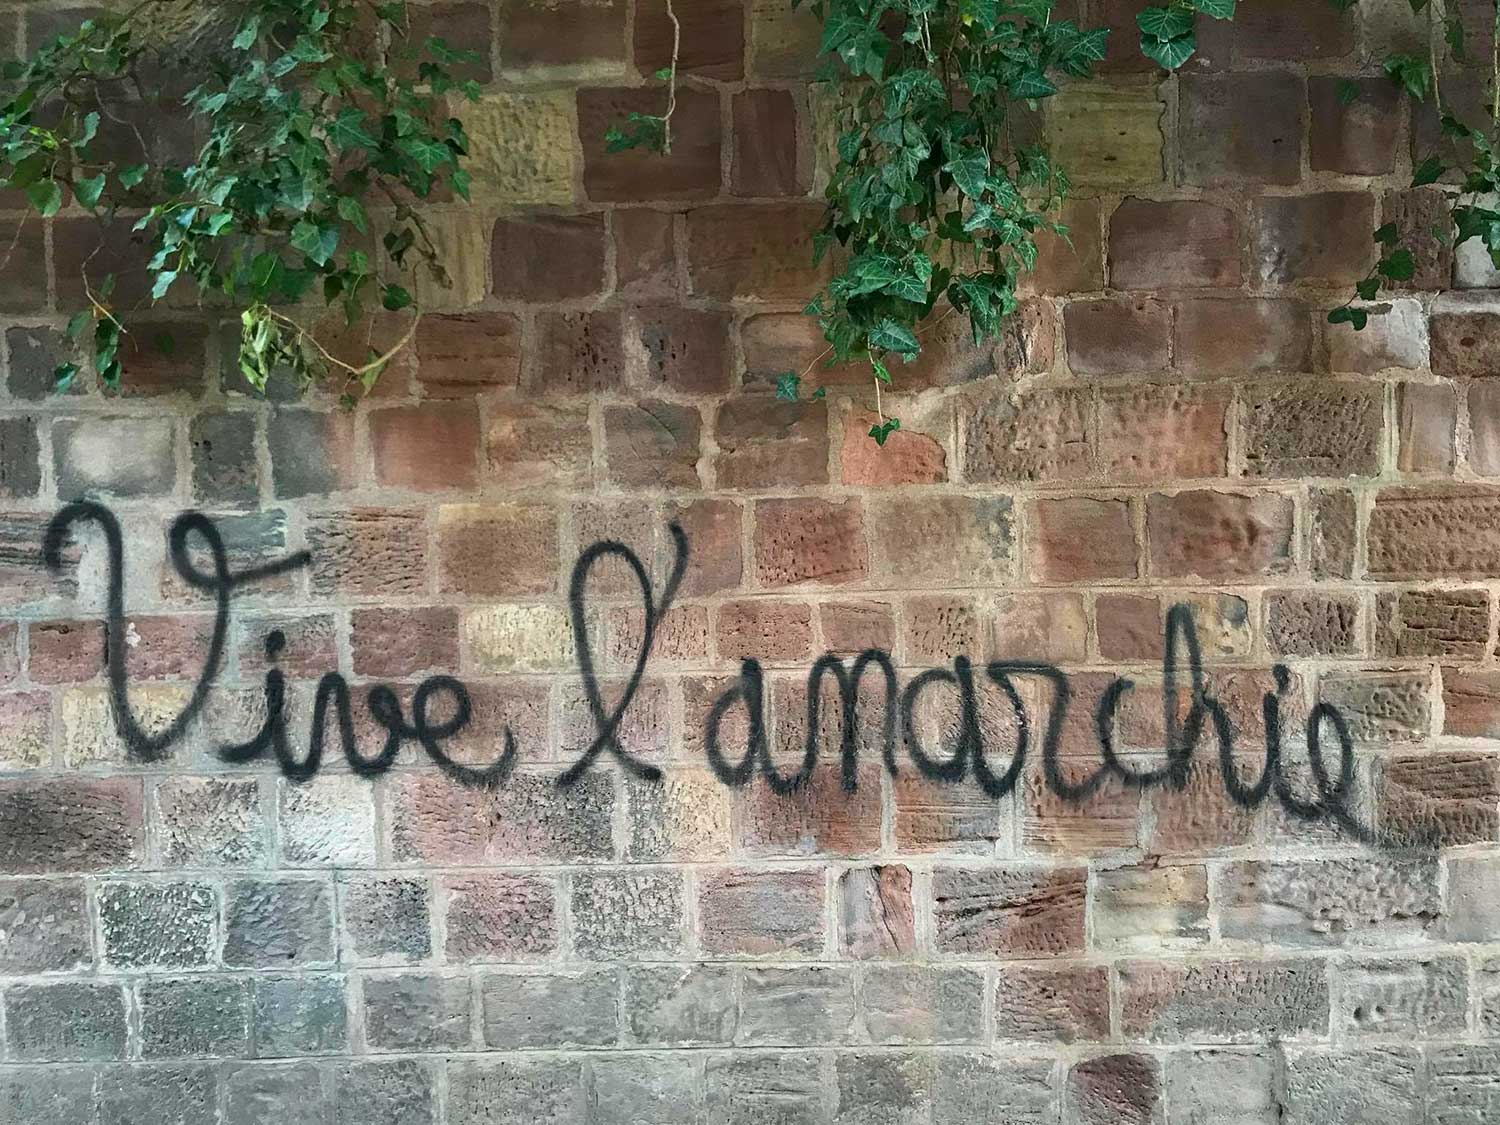 Vive l'anarchie